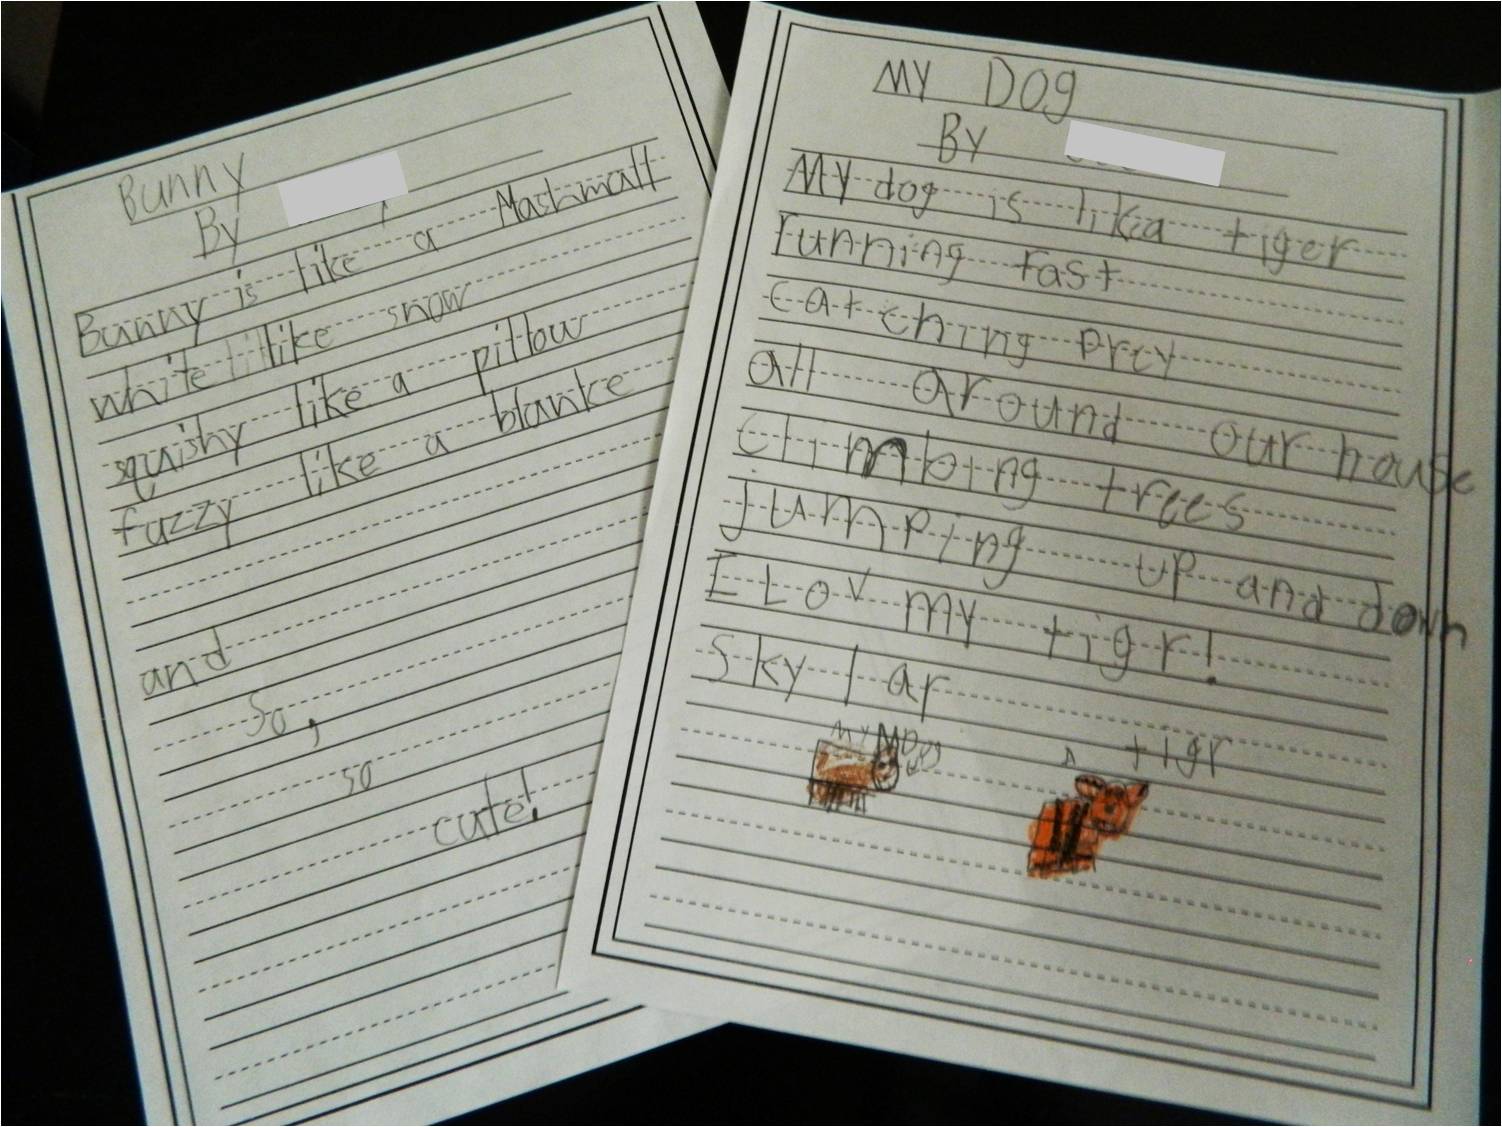 Bunny
By
Bunny is like a Mashmall
white like snow
squishy like a pillow
fuzzy like a blanke
and
so,
so
cute!
MY DOg
BY
My dog is lika tiger
running fast
catching prey
all around our house
climbing trees
jumping up and down
I Lov my tigr!
Skylar
my Dog
A tigr